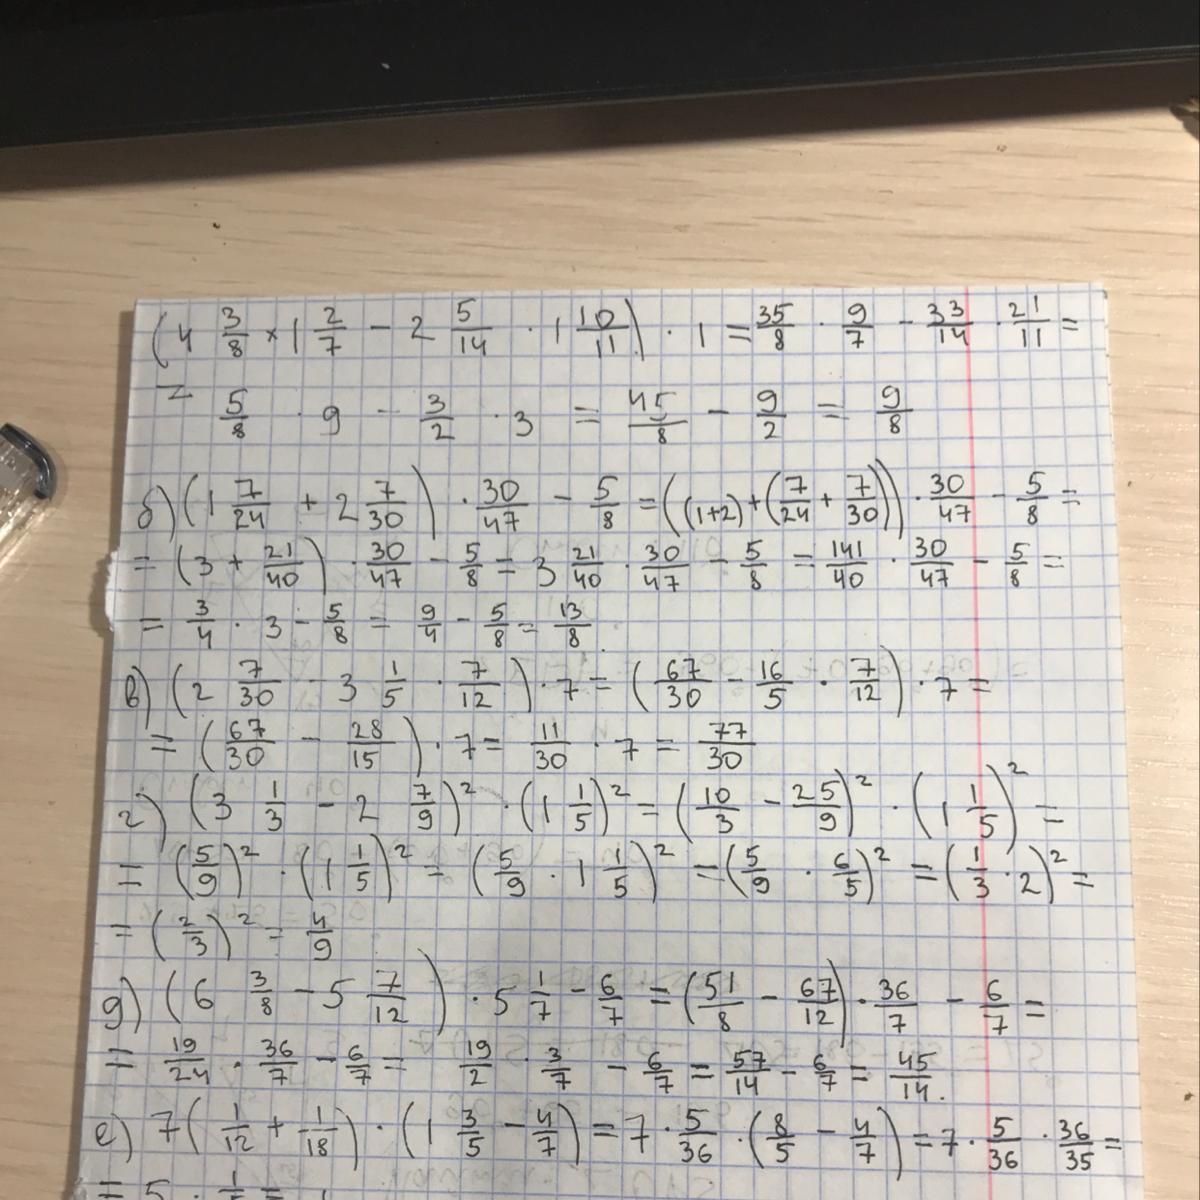 (4 3/8 × 1 2/7 − 2 5/14 · 1 10/11) · 1 = 35/8 · 9/7 − 33/14 · 21/11 =
= 5/8 · 9 − 3/2 · 3 = 45/8 − 9/2 = 9/8
б) (1 7/24 + 2 7/30) · 30/47 − 5/8 = ((1+2) + (7/24 + 7/30)) · 30/47 − 5/8 =
= (3 + 21/40) · 30/47 − 5/8 = 3 21/40 · 30/47 − 5/8 = 141/40 · 30/47 − 5/8 =
= 3/4 · 3 − 5/8 = 9/4 − 5/8 = 13/8.
в) (2 7/30 − 3 1/5 · 7/12) · 7 = (67/30 − 16/5 · 7/12) · 7 =
= (67/30 − 28/15) · 7 = 11/30 · 7 = 77/30
г) (3 1/3 − 2 7/9)² · (1 1/5)² = (10/3 − 25/9)² · (1 1/5)² =
= (5/9)² · (1 1/5)² = (5/9 · 1 1/5)² = (5/9 · 6/5)² = (1/3 · 2)² =
= (2/3)² = 4/9
д) (6 3/8 − 5 7/12) · 5 1/7 − 6/7 = (51/8 − 67/12) · 36/7 − 6/7 =
= 19/24 · 36/7 − 6/7 = 19/2 · 3/7 − 6/7 = 57/14 − 6/7 = 45/14.
е) 7(1/12 + 1/18) · (1 3/5 − 4/7) = 7 · 5/36 · (8/5 − 4/7) = 7 · 5/36 · 36/35 =
= 5 ·